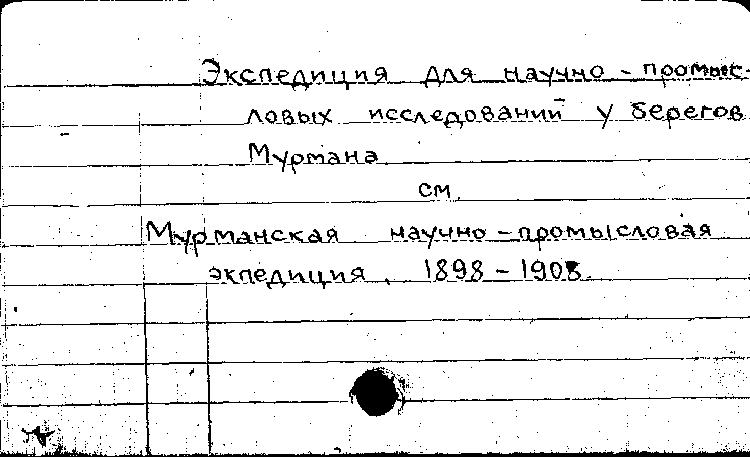 Экспедиция для научно - промыс-
ловых исследований у берегов
Мурмана
см.
Мурманская научно - промысловая
экпедиция, 1898 - 1908.